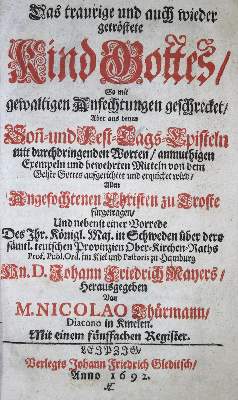 Das traurige und auch wieder
getröstete
Kind Gottes/
So mit
gewaltigen Anfechtungen geschrecket/
Aber aus denen
Soñ-und Fest-Tags-Episteln
mit durchdringenden Worten/ anmuthigen
Exempeln und bewehrten Mitteln von dem
Geiste Gottes auffgerichtet und erquicket wird/
Allen
Angefochtenen Christen zu Troste
fürgetragen/
Und nebenst einer Vorrede
Des Ihr. Königl. Maj. in Schweden über dero
sämtl. teutschen Provinzien Ober-Kirchen-Raths
Prof. Publ. Ord. im Kiel und Pastoris zu Hamburg
Hn. D. Johann Friedrich Mayers/
Herausgegeben
Von
M. NICOLAO Thürmann/
Diacono in
Mit einem fünffachen Register.
LEJPZJG/
Verlegts Johann Friedrich Gleditsch/
Anno 1692.